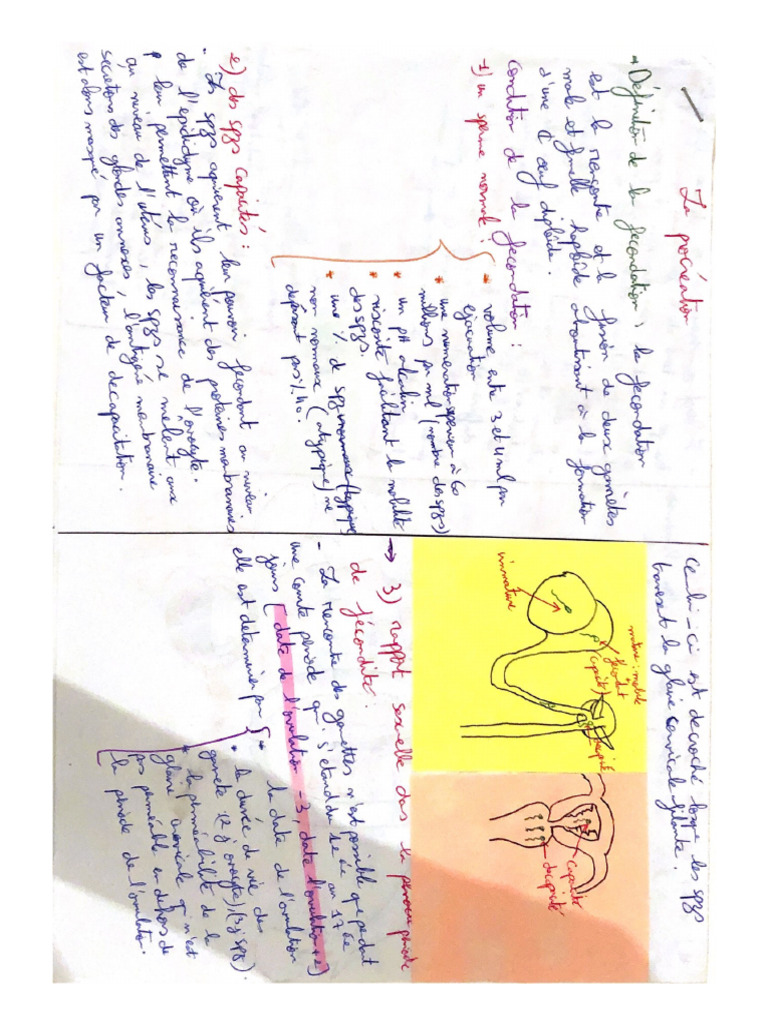 La procréation
→ Définition de la fecondation : la fecondation
est la rencontre et la fusion de deux gamètes
male et femelle haploïde aboutissant à la formation
d'une C œuf diploïde.
Condition de la fecondation :
1) un sperme normale :
* volume entre 3 et 4 ml par
ejaculation
* une numération superieur à 60
millions par ml (nombre des spzs)
* un pH alcalin
* viscosité facilitant la mobilité
des spzs.
* une % de spz (typique)
non normaux (atypique) ne
dépassent pas % 40.
2) des spzs capacités :
. Les spzs aquierent leur pouvoir fecondant au niveau
de l'epididyme où ils aquièrent des proteines membranaires
p leur permettant la reconnaissance de l'ovocyte.
au niveau de l'utérus, les spzs se mêlent aux
secretions des glandes annexes, l'antigène membranaire
est alors masqué par un facteur de decapacitation.
Celui-ci est decroché lorsque les spzs
traverst la glaire cervicale filante.
mature : mobile
fecondant
(capacité)
immature
decapité
capacité
decapité
→ 3) rapport sexuelle dans la période
de fécondité :
- La rencontre des gamettes n'est possible que pendant
une courte période qui s'étend du 12 è au 17 è
jours [date de l'ovulation - 3, date l'ovulation + 2]
elle est determiner par
* la date de l'ovulation
* la durée de vie des
gamète (2 j ovocyte) (3 j spz).
* la perméabilité de la
glaire cervicale qui n'est
pas perméable en dehors de
la période de l'ovulation.